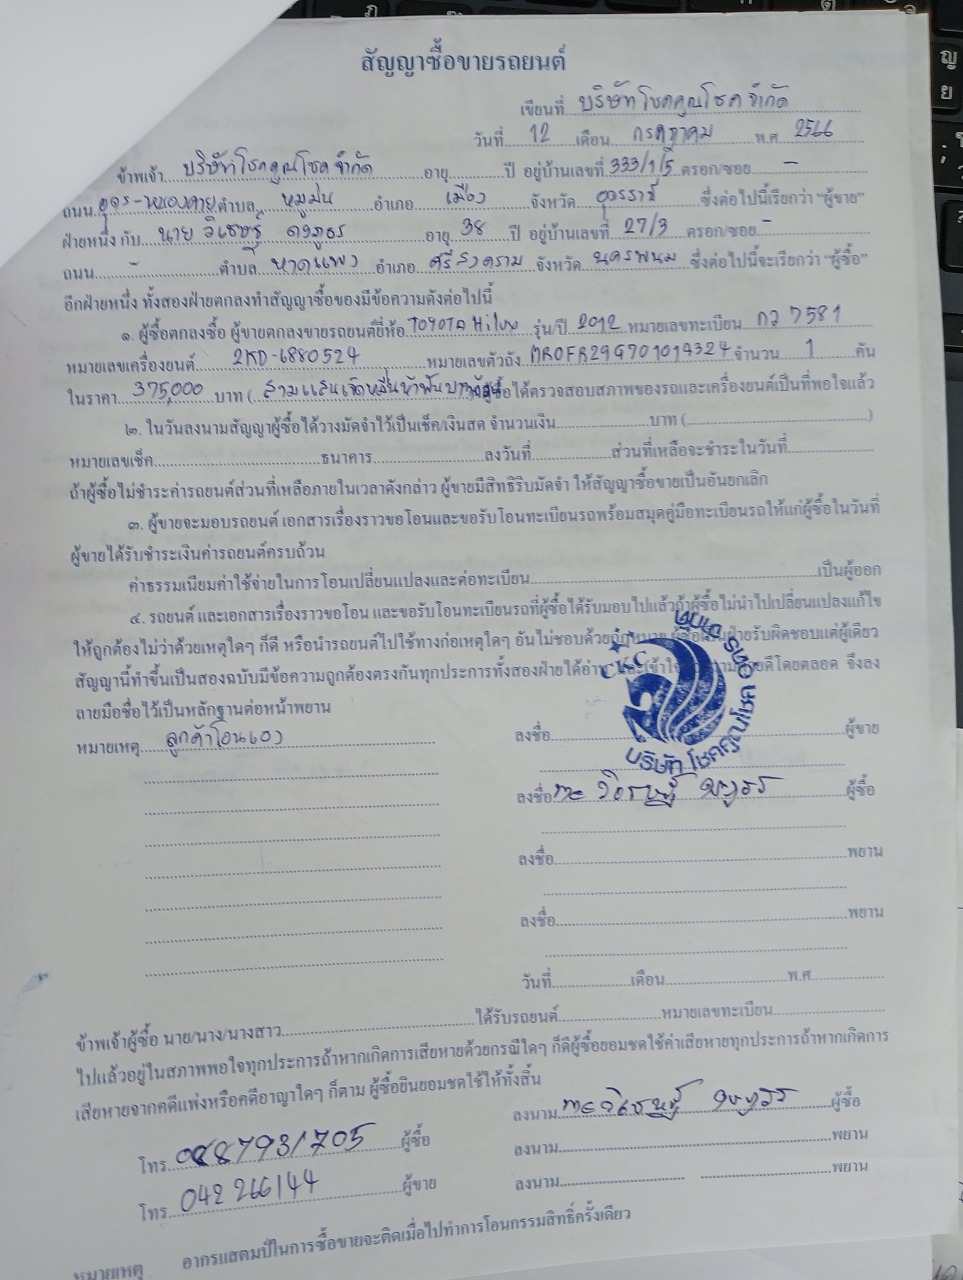 สัญญาซื้อขายรถยนต์
เขียนที่ บริษัทโชคคูณโชค จำกัด
วันที่ 12 เดือน กรกฎาคม พ.ศ. 2566
ข้าพเจ้า บริษัทโชคคูณโชค จำกัด อายุ..........ปี อยู่บ้านเลขที่ 333/1/5 ตรอก/ซอย -
ถนน อุดร-หนองคาย ตำบล หมูม่น อำเภอ เมือง จังหวัด อุดรธานี ซึ่งต่อไปนี้เรียกว่า "ผู้ขาย"
ฝ่ายหนึ่ง กับ นาย วิเชษฐ์ อายุ 38 ปี อยู่บ้านเลขที่ 27/3 ตรอก/ซอย -
ถนน - ตำบล หาดแพง อำเภอ ศรีสงคราม จังหวัด นครพนม ซึ่งต่อไปนี้จะเรียกว่า "ผู้ซื้อ"
อีกฝ่ายหนึ่ง ทั้งสองฝ่ายตกลงทำสัญญาซื้อของมีข้อความดังต่อไปนี้
๑. ผู้ซื้อตกลงซื้อ ผู้ขายตกลงขายรถยนต์ยี่ห้อ TOYOTA Hilux รุ่น/ปี 2012 หมายเลขทะเบียน กว 7581
หมายเลขเครื่องยนต์ 2KD-6880524 หมายเลขตัวถัง MROFR29G701019324 จำนวน 1 คัน
ในราคา 375,000 บาท ( สามแสนเจ็ดหมื่นห้าพันบาทถ้วน ผู้ซื้อได้ตรวจสอบสภาพของรถและเครื่องยนต์เป็นที่พอใจแล้ว
๒. ในวันลงนามสัญญาผู้ซื้อได้วางมัดจำไว้เป็นเช็ค/เงินสด จำนวนเงิน..........บาท (..........)
หมายเลขเช็ค..........ธนาคาร..........ลงวันที่..........ส่วนที่เหลือจะชำระในวันที่..........
ถ้าผู้ซื้อไม่ชำระค่ารถยนต์ส่วนที่เหลือภายในเวลาดังกล่าว ผู้ขายมีสิทธิริบมัดจำ ให้สัญญาซื้อขายเป็นอันยกเลิก
๓. ผู้ขายจะมอบรถยนต์ เอกสารเรื่องราวขอโอนและขอรับโอนทะเบียนรถพร้อมสมุดคู่มือทะเบียนรถให้แก่ผู้ซื้อในวันที่
ผู้ขายได้รับชำระเงินค่ารถยนต์ครบถ้วน
ค่าธรรมเนียมค่าใช้จ่ายในการโอนเปลี่ยนแปลงและต่อทะเบียน..........เป็นผู้ออก
๔. รถยนต์ และเอกสารเรื่องราวขอโอน และขอรับโอนทะเบียนรถที่ผู้ซื้อได้รับมอบไปแล้วถ้าผู้ซื้อไม่นำไปเปลี่ยนแปลงแก้ไข
ให้ถูกต้องไม่ว่าด้วยเหตุใดๆ ก็ดี หรือนำรถยนต์ไปใช้ทางก่อเหตุใดๆ อันไม่ชอบด้วยกฎหมาย ผู้ซื้อเป็นฝ่ายรับผิดชอบแต่ผู้เดียว
สัญญานี้ทำขึ้นเป็นสองฉบับมีข้อความถูกต้องตรงกันทุกประการทั้งสองฝ่ายได้อ่านและเข้าใจข้อความด้วยดีโดยตลอด จึงลง
ลายมือชื่อไว้เป็นหลักฐานต่อหน้าพยาน
หมายเหตุ ลูกค้าโอนเอง ลงชื่อ..........ผู้ขาย
CKC
บริษัท โชคคูณโชค อุดร จำกัด
ลงชื่อ ผู้ซื้อ
ลงชื่อ..........พยาน
ลงชื่อ..........พยาน
วันที่..........เดือน..........พ.ศ...........
ข้าพเจ้าผู้ซื้อ นาย/นาง/นางสาว..........ได้รับรถยนต์..........หมายเลขทะเบียน..........
ไปแล้วอยู่ในสภาพพอใจทุกประการถ้าหากเกิดการเสียหายด้วยกรณีใดๆ ก็ดีผู้ซื้อยอมชดใช้ค่าเสียหายทุกประการถ้าหากเกิดการ
เสียหายจากคดีแพ่งหรือคดีอาญาใดๆ ก็ตาม ผู้ซื้อยินยอมชดใช้ให้ทั้งสิ้น
ลงนาม ผู้ซื้อ
โทร. 0887931705 ผู้ซื้อ ลงนาม..........พยาน
โทร. 042 266144 ผู้ขาย ลงนาม..........พยาน
หมายเหตุ อากรแสตมป์ในการซื้อขายจะติดเมื่อไปทำการโอนกรรมสิทธิ์ครั้งเดียว